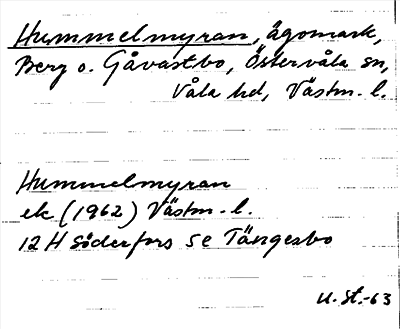 Hummelmyran, ägomark,
Berg o. Gåvastbo, Östervåla sn,
Våla hd, Västm. l.
Hummelmyran
ek (1962) Västm-l.
12 H Söderfors se Tängesbo
U. St.-63